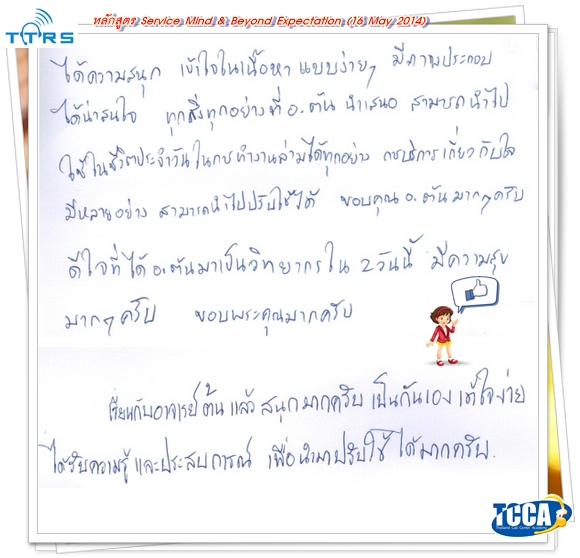 TTRS
หลักสูตร Service Mind & Beyond Expectation (16 May 2014)
ได้ความสนุก เข้าใจในเนื้อหา แบบง่ายๆ มีภาพประกอบ
ได้น่าสนใจ ทุกสิ่งทุกอย่างที่ อ.ต้น นำเสนอ สามารถนำไป
ใช้ในชีวิตประจำวันในการทำงานล่ามได้ทุกอย่าง การบริการเกี่ยวกับใจ
มีหลายอย่าง สามารถนำไปปรับใช้ได้ ขอบคุณ อ.ต้นมากๆครับ
ดีใจที่ได้ อ.ต้นมาเป็นวิทยากรใน 2 วันนี้ มีความสุข
มากๆครับ ขอบพระคุณมากครับ
เรียนกับอาจารย์ต้น แล้ว สนุกมากครับ เป็นกันเอง เข้าใจง่าย
ได้รับความรู้ และประสบการณ์ เพื่อนำมาปรับใช้ ได้มากครับ.
TCCA
Thailand Call Center Academy